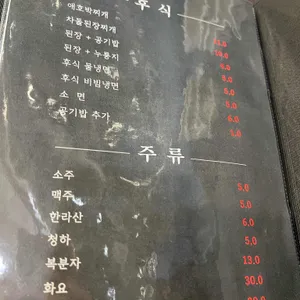 후식
애호박찌개
차돌된장찌개
된장 + 공기밥 8.0
된장 + 누룽지
후식 물냉면 8.0
후식 비빔냉면 8.0
소 면 6.0
공기밥 추가 1.0
주류
소주 5.0
맥주 5.0
한라산 6.0
청하 5.0
복분자 13.0
화요 30.0